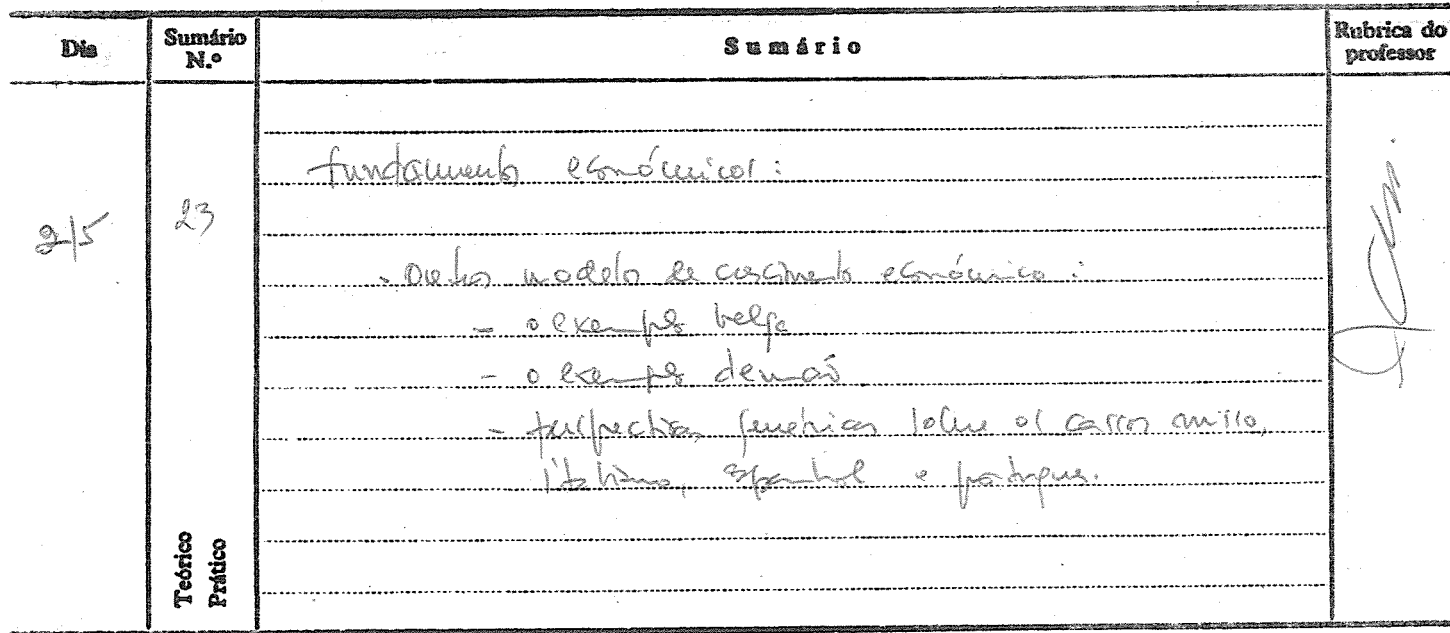 Dia
Sumário N.º
Sumário
Rubrica do professor
2/5
23
Fundamentos económicos:
- Outros modelos de crescimento económico:
- o exemplo belga
- o exemplo alemão
- perspectivas genéricas sobre os casos suíço,
italiano, espanhol e português.
Teórico
Prático